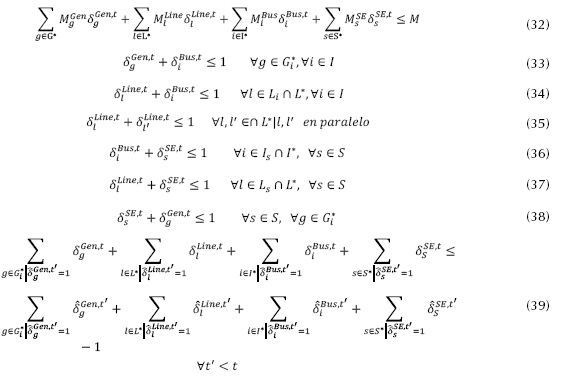 ∑_{g∈G*} M_g^{Gen} δ_g^{Gen,t} + ∑_{l∈L*} M_l^{Line} δ_l^{Line,t} + ∑_{i∈I*} M_i^{Bus} δ_i^{Bus,t} + ∑_{s∈S*} M_s^{SE} δ_s^{SE,t} ≤ M (32)
δ_g^{Gen,t} + δ_i^{Bus,t} ≤ 1 ∀g ∈ G_i^*, ∀i ∈ I (33)
δ_l^{Line,t} + δ_i^{Bus,t} ≤ 1 ∀l ∈ L_i ∩ L*, ∀i ∈ I (34)
δ_l^{Line,t} + δ_{l'}^{Line,t} ≤ 1 ∀l, l' ∈∩ L*|l, l' en paralelo (35)
δ_i^{Bus,t} + δ_s^{SE,t} ≤ 1 ∀i ∈ I_s ∩ I*, ∀s ∈ S (36)
δ_l^{Line,t} + δ_s^{SE,t} ≤ 1 ∀l ∈ L_s ∩ L*, ∀s ∈ S (37)
δ_s^{SE,t} + δ_g^{Gen,t} ≤ 1 ∀s ∈ S, ∀g ∈ G_i^* (38)
∑_{g∈G_i^*|δ̂_g^{Gen,t'}=1} δ_g^{Gen,t} + ∑_{l∈L*|δ̂_l^{Line,t'}=1} δ_l^{Line,t} + ∑_{i∈I*|δ̂_i^{Bus,t'}=1} δ_i^{Bus,t} + ∑_{s∈S*|δ̂_s^{SE,t'}=1} δ_S^{SE,t} ≤
∑_{g∈G_i^*|δ̂_g^{Gen,t'}=1} δ̂_g^{Gen,t'} + ∑_{l∈L*|δ̂_l^{Line,t'}=1} δ̂_l^{Line,t'} + ∑_{i∈I*|δ̂_i^{Bus,t'}=1} δ̂_i^{Bus,t'} + ∑_{s∈S*|δ̂_s^{SE,t'}=1} δ̂_S^{SE,t'} (39)
− 1
∀t' < t